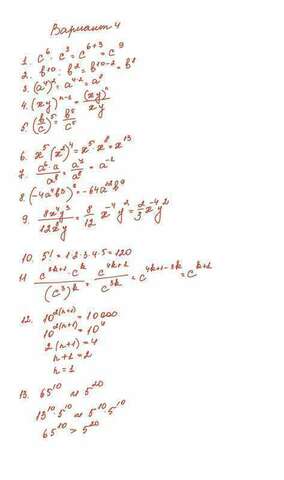 Вариант 4
1. c^6 · c^3 = c^{6+3} = c^9
2. b^{10} : b^2 = b^{10-2} = b^8
3. (a^4)^2 = a^{4·2} = a^8
4. (xy)^{n-1} = (xy)^n / xy
5. (b/c)^5 = b^5 / c^5
6. x^5 (x^2)^4 = x^5 · x^8 = x^{13}
7. a^6 · a / a^8 = a^7 / a^8 = a^{-1}
8. (-4a^4b^3)^3 = -64a^{12}b^9
9. 8x^4y^3 / 12x^8y = 8/12 x^{-4} y^2 = 2/3 x^{-4} y^2
10. 5! = 1·2·3·4·5 = 120
11 c^{3k+1} · c^k / (c^3)^k = c^{4k+1} / c^{3k} = c^{4k+1-3k} = c^{k+1}
12. 10^{2(n+1)} = 10 000
10^{2(n+1)} = 10^4
2(n+1) = 4
n+1 = 2
n = 1
13. 65^{10} и 5^{20}
13^{10} · 5^{10} и 5^{10} · 5^{10}
65^{10} > 5^{20}